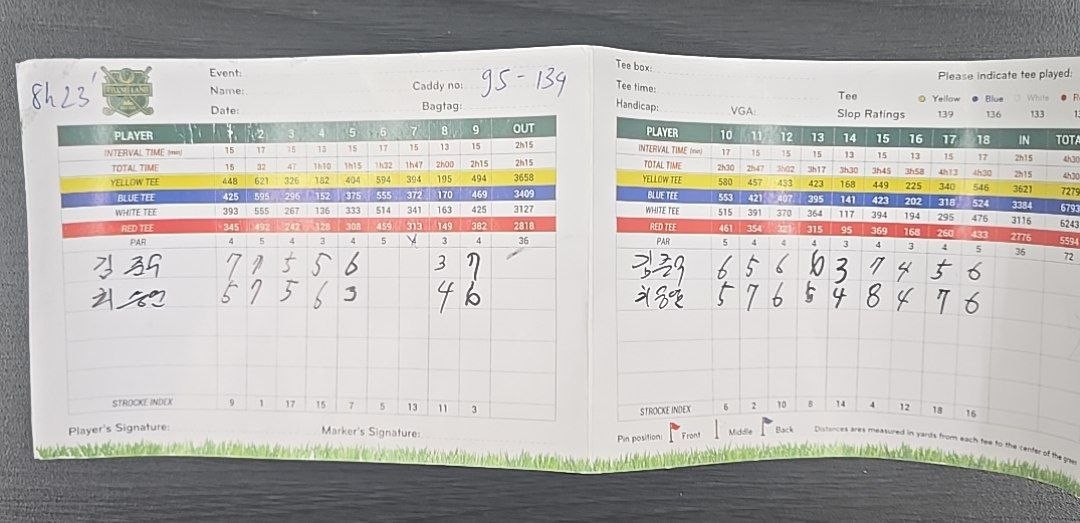 8h23'
Event:
Name:
Caddy no: 95-134
Date:
Bagtag:
PLAYER 1 2 3 4 5 6 7 8 9 OUT
INTERVAL TIME (min) 15 17 15 13 15 17 15 13 15 2h15
TOTAL TIME 15 32 47 1h10 1h15 1h32 1h47 2h00 2h15 2h15
YELLOW TEE 448 621 326 182 404 594 394 195 494 3658
BLUE TEE 425 595 296 152 375 555 372 170 469 3409
WHITE TEE 393 555 267 136 333 514 341 163 425 3127
RED TEE 345 492 242 128 308 459 313 149 382 2818
PAR 4 5 4 3 4 5 4 3 4 36
7 7 5 5 6 3 7
5 7 5 6 3 4 6
STROCKE INDEX 9 1 17 15 7 5 13 11 3
Player's Signature:
Marker's Signature:
Tee box:
Tee time:
Handicap:
VGA:
Please indicate tee played:
Tee Yellow Blue White
Slop Ratings 139 136 133
PLAYER 10 11 12 13 14 15 16 17 18 IN
INTERVAL TIME (min) 17 15 15 15 13 15 13 15 17 2h15 4h30
TOTAL TIME 2h30 2h47 3h02 3h17 3h30 3h45 3h58 4h13 4h30 2h15 4h30
YELLOW TEE 580 457 433 423 168 449 225 340 546 3621 7279
BLUE TEE 553 421 407 395 141 423 202 318 524 3384 6793
WHITE TEE 515 391 370 364 117 394 194 295 476 3116 6243
RED TEE 461 354 321 315 95 369 168 260 433 2776 5594
PAR 5 4 4 4 3 4 3 4 5 36 72
6 5 6 6 3 7 4 5 6
5 7 6 5 4 8 4 7 6
STROCKE INDEX 6 2 10 8 14 4 12 18 16
Pin position: Front Middle Back Distances ares measured in yards from each tee to the center of the green